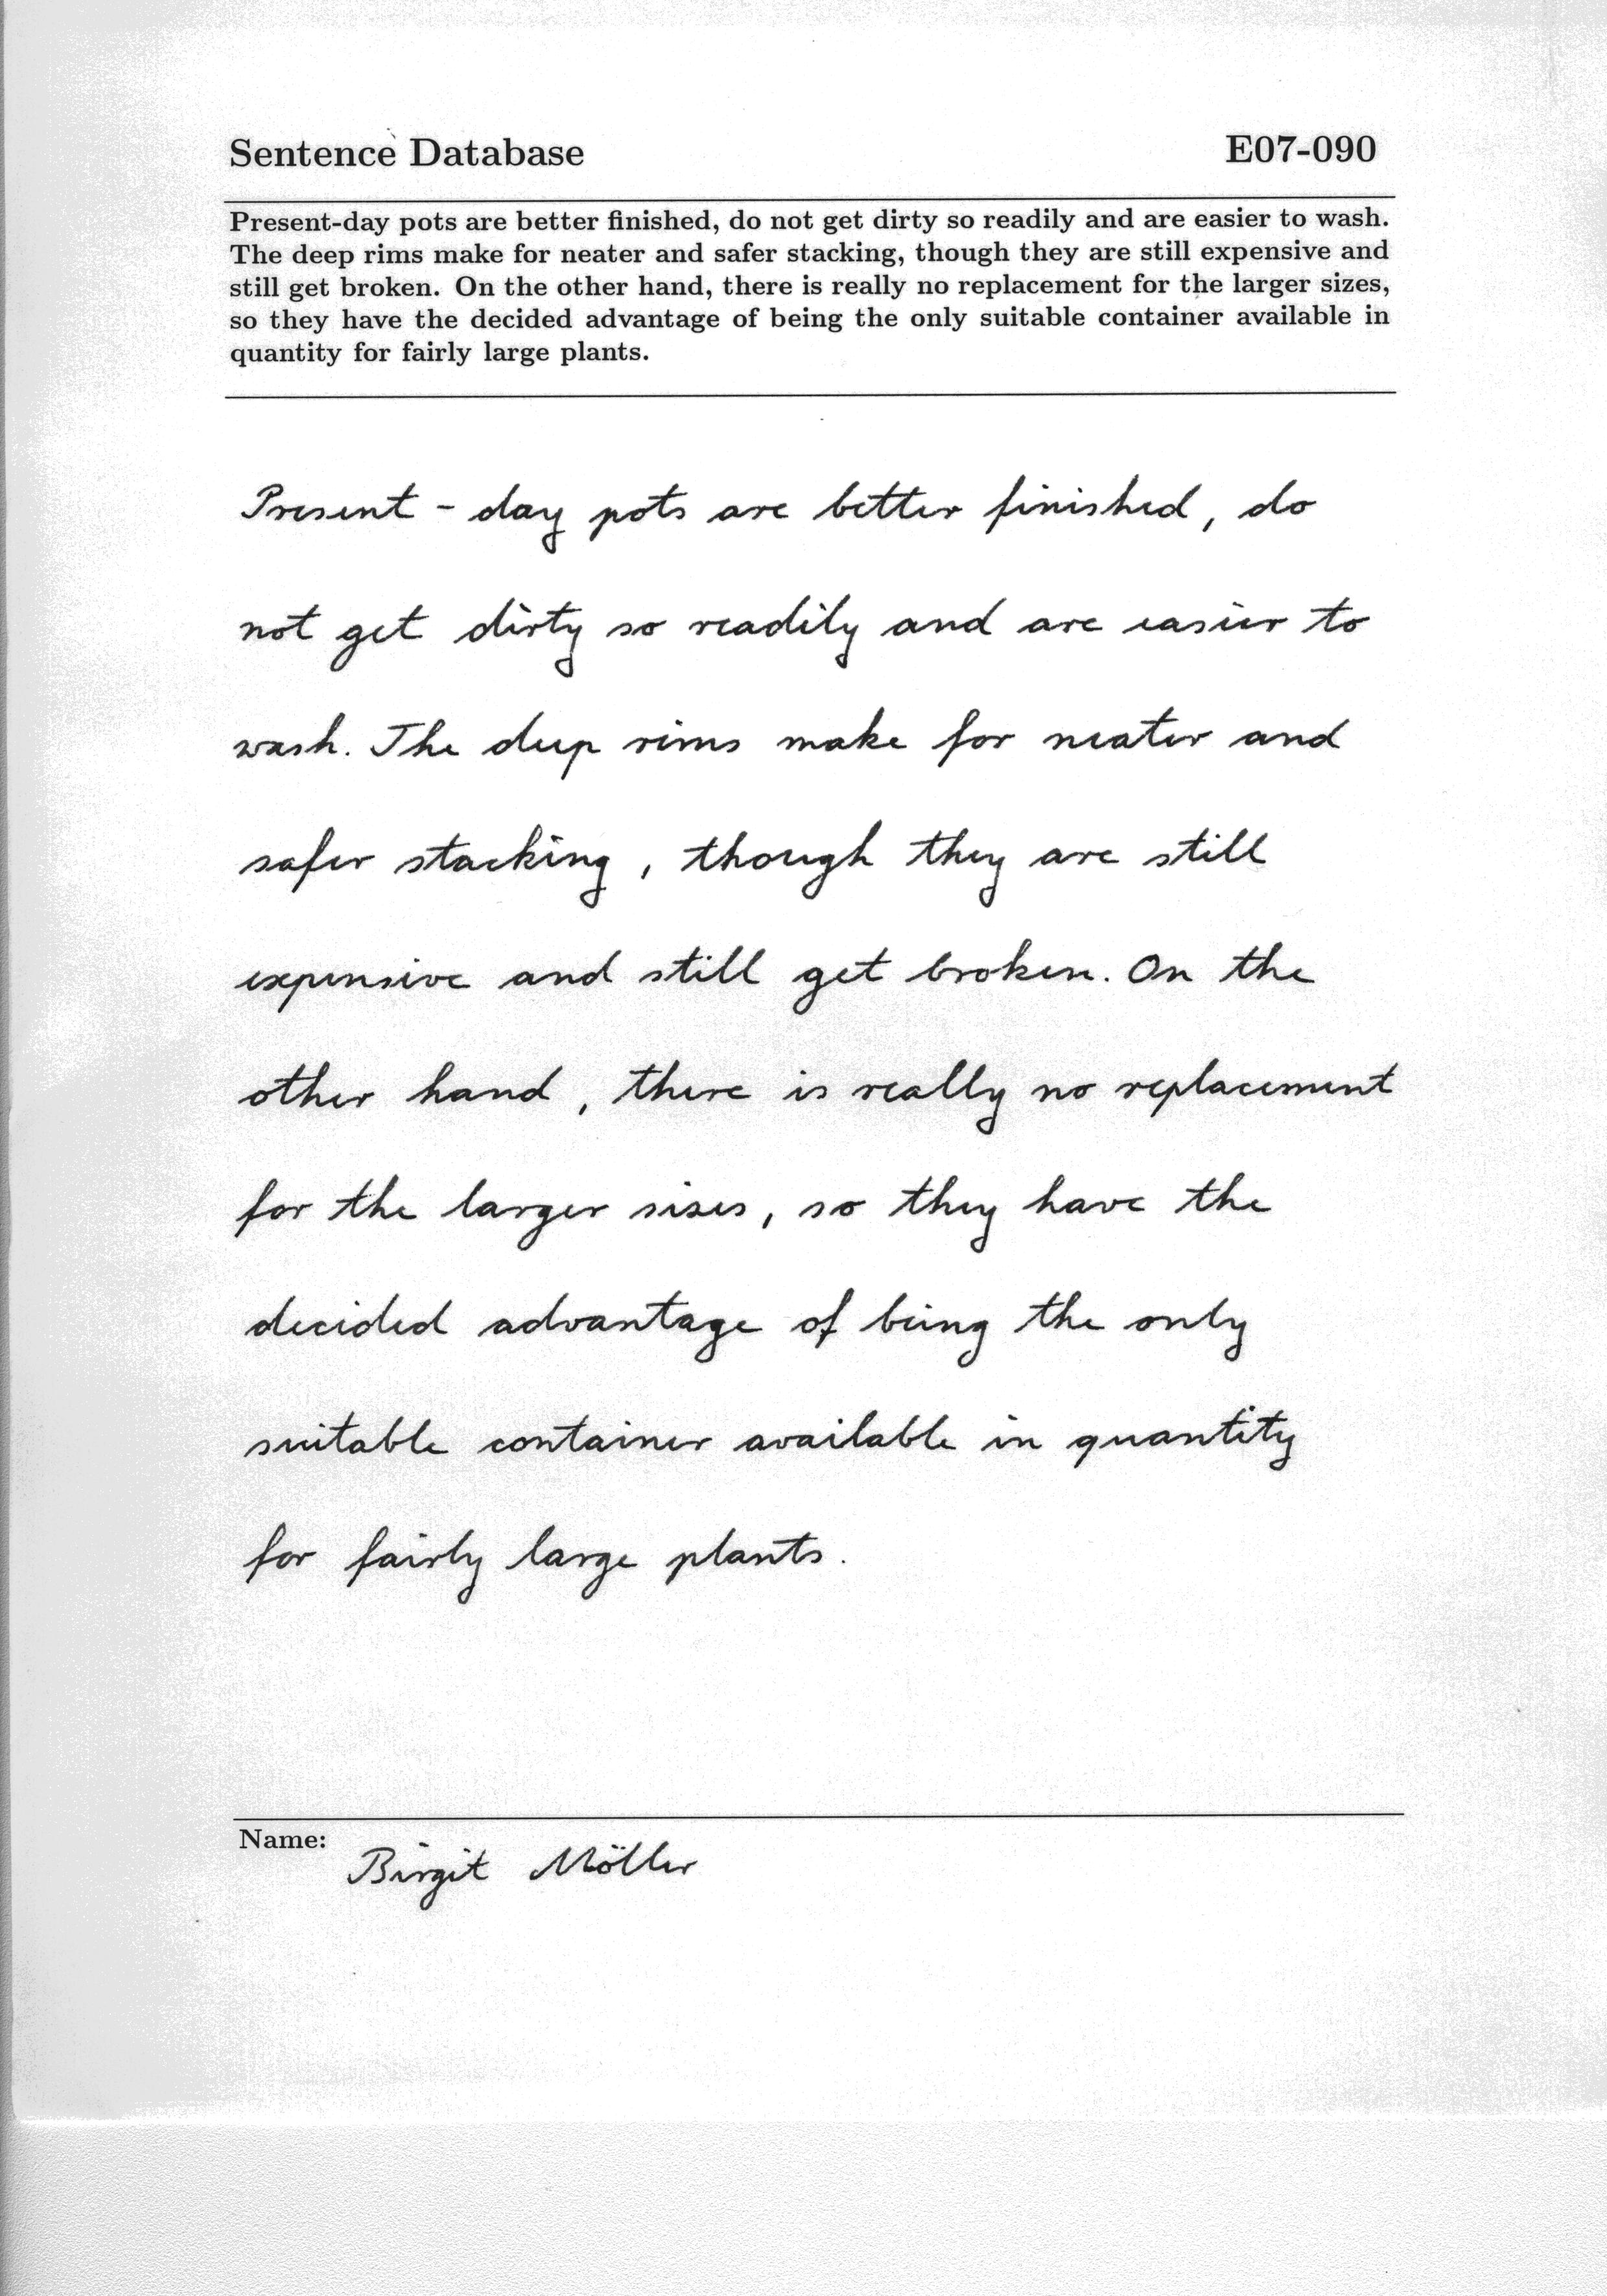 Sentence Database E07-090
Present-day pots are better finished, do not get dirty so readily and are easier to wash.
The deep rims make for neater and safer stacking, though they are still expensive and
still get broken. On the other hand, there is really no replacement for the larger sizes,
so they have the decided advantage of being the only suitable container available in
quantity for fairly large plants.
Present - day pots are better finished, do
not get dirty so readily and are easier to
wash. The deep rims make for neater and
safer stacking, though they are still
expensive and still get broken. On the
other hand, there is really no replacement
for the larger sises, so they have the
decided advantage of being the only
suitable container available in quantity
for fairly large plants.
Name:
Birgit Möller